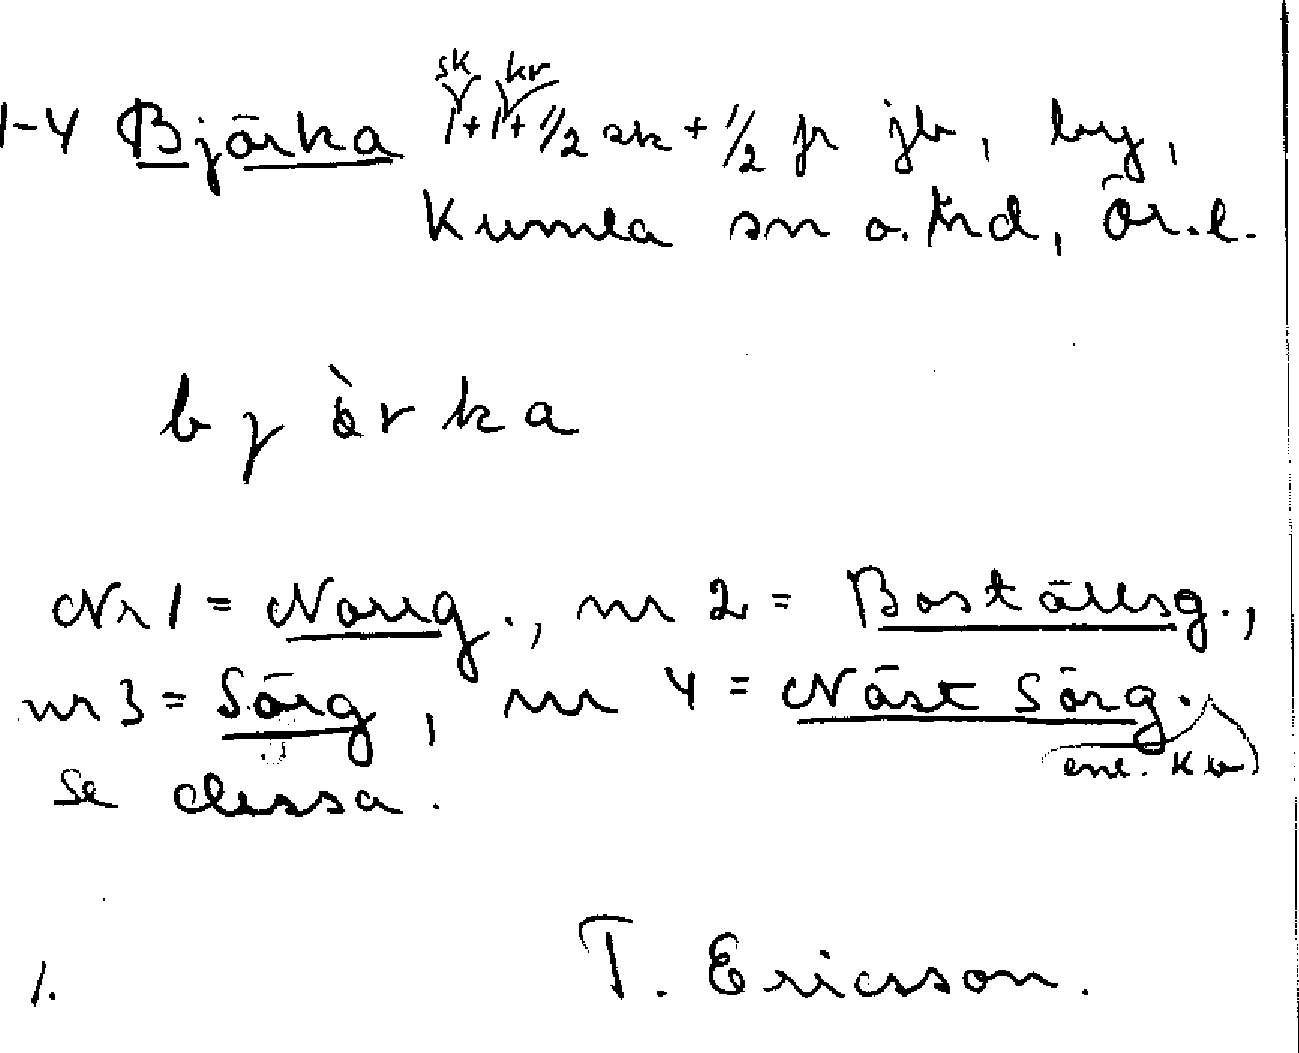 sk kr
1-4 Björka 1+1+1/2 sk + 1/2 fr jb, by,
Kumla sn o. hd, Ör. l.
bjòrka
Nr 1 = Norrg., nr 2 = Boställsg.,
nr 3 = Sörg, nr 4 = Näst Sörg.
enl. Kb
se dessa.
1. T. Ericsson.